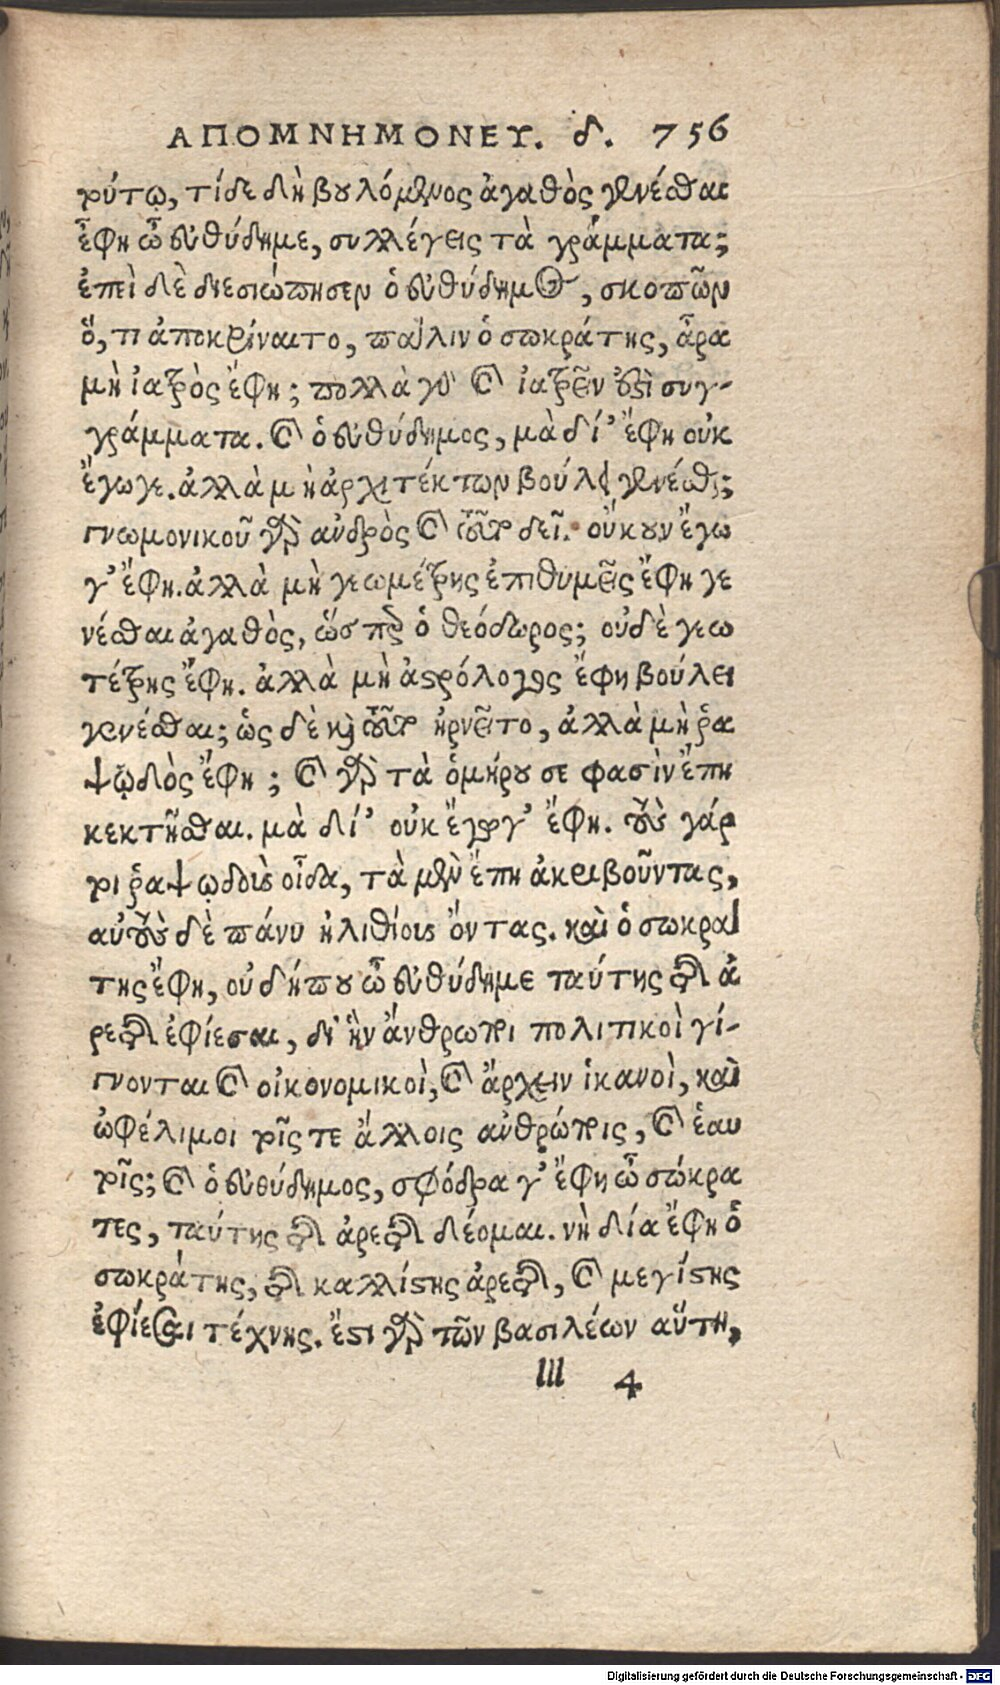 ΑΠΟΜΝΗΜΟΝΕΥ. δ. 756
τούτῳ, τί δε δὴ βουλόμενος ἀγαθὸς γενέσθαι
ἔφη ὦ εὐθύδημε, συλλέγεις τὰ γράμματα;
ἐπεὶ δὲ διεσιώπησεν ὁ εὐθύδημος, σκοπῶν
ὅ, τι ἀποκρίναιτο, πάλιν ὁ σωκράτης, ἆρα
μὴ ἰατρὸς ἔφη; πολλὰ γὰρ καὶ ἰατρῶν ἐστὶ συγ-
γράμματα. καὶ ὁ εὐθύδημος, μὰ δί' ἔφη οὐκ
ἔγωγε. ἀλλὰ μὴ ἀρχιτέκτων βούλει γενέσθαι;
γνωμονικοῦ γὰρ ἀνδρὸς καὶ τοῦτο δεῖ. οὔκουν ἔγω
γ' ἔφη. ἀλλὰ μὴ γεωμέτρης ἐπιθυμεῖς ἔφη γε
νέσθαι ἀγαθὸς, ὥσπερ ὁ θεόδωρος; οὐδὲ γεω
τέτρης ἔφη. ἀλλὰ μὴ ἀστρόλογος ἔφη βούλει
γενέσθαι; ὡς δὲ καὶ τοῦτο ἠρνεῖτο, ἀλλὰ μὴ ῥα
ψῳδὸς ἔφη; καὶ γὰρ τὰ ὁμήρου σε φασὶν ἔπη
κεκτῆσθαι. μὰ δί' οὐκ ἔγωγ' ἔφη. τοὺς γάρ
τοι ῥαψῳδοὺς οἶδα, τὰ μὲν ἔπη ἀκριβοῦντας,
αὐτοὺς δὲ πάνυ ἠλιθίους ὄντας. καὶ ὁ σωκρά
της ἔφη, οὐ δήπου ὦ εὐθύδημε ταύτης τῆς ἀ
ρετῆς ἐφίεσαι, δι' ἣν ἄνθρωποι πολιτικοὶ γί-
γνονται καὶ οἰκονομικοὶ, καὶ ἄρχειν ἱκανοὶ, καὶ
ὠφέλιμοι τοῖς τε ἄλλοις ἀνθρώποις, καὶ ἑαυ
τοῖς; καὶ ὁ εὐθύδημος, σφόδρα γ' ἔφη ὦ σώκρα
τες, ταύτης τῆς ἀρετῆς δέομαι. νὴ δία ἔφη ὁ
σωκράτης, τῆς καλλίστης ἀρετῆς, καὶ μεγίστης
ἐφίεσαι τέχνης. ἔστι γὰρ τῶν βασιλέων αὕτη,
lll 4
Digitalisierung gefördert durch die Deutsche Forschungsgemeinschaft - DFG